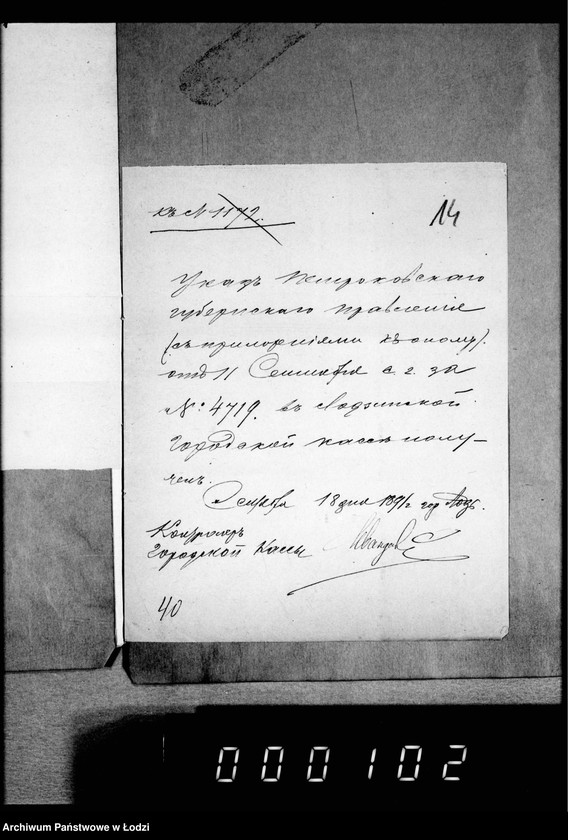 къ № 1172.
14
Указъ Петроковскаго
Губернскаго Правленія
(съ приложеніями къ оному)
отъ 11 Сентября с. г. за
№: 4719. въ Лодзинской
Городской кассѣ полу-
ченъ.
Сентября 18 дня 1891 г. гор. Лодзь.
Контролеръ
Городской Кассы
40
000102
Archiwum Państwowe w Łodzi